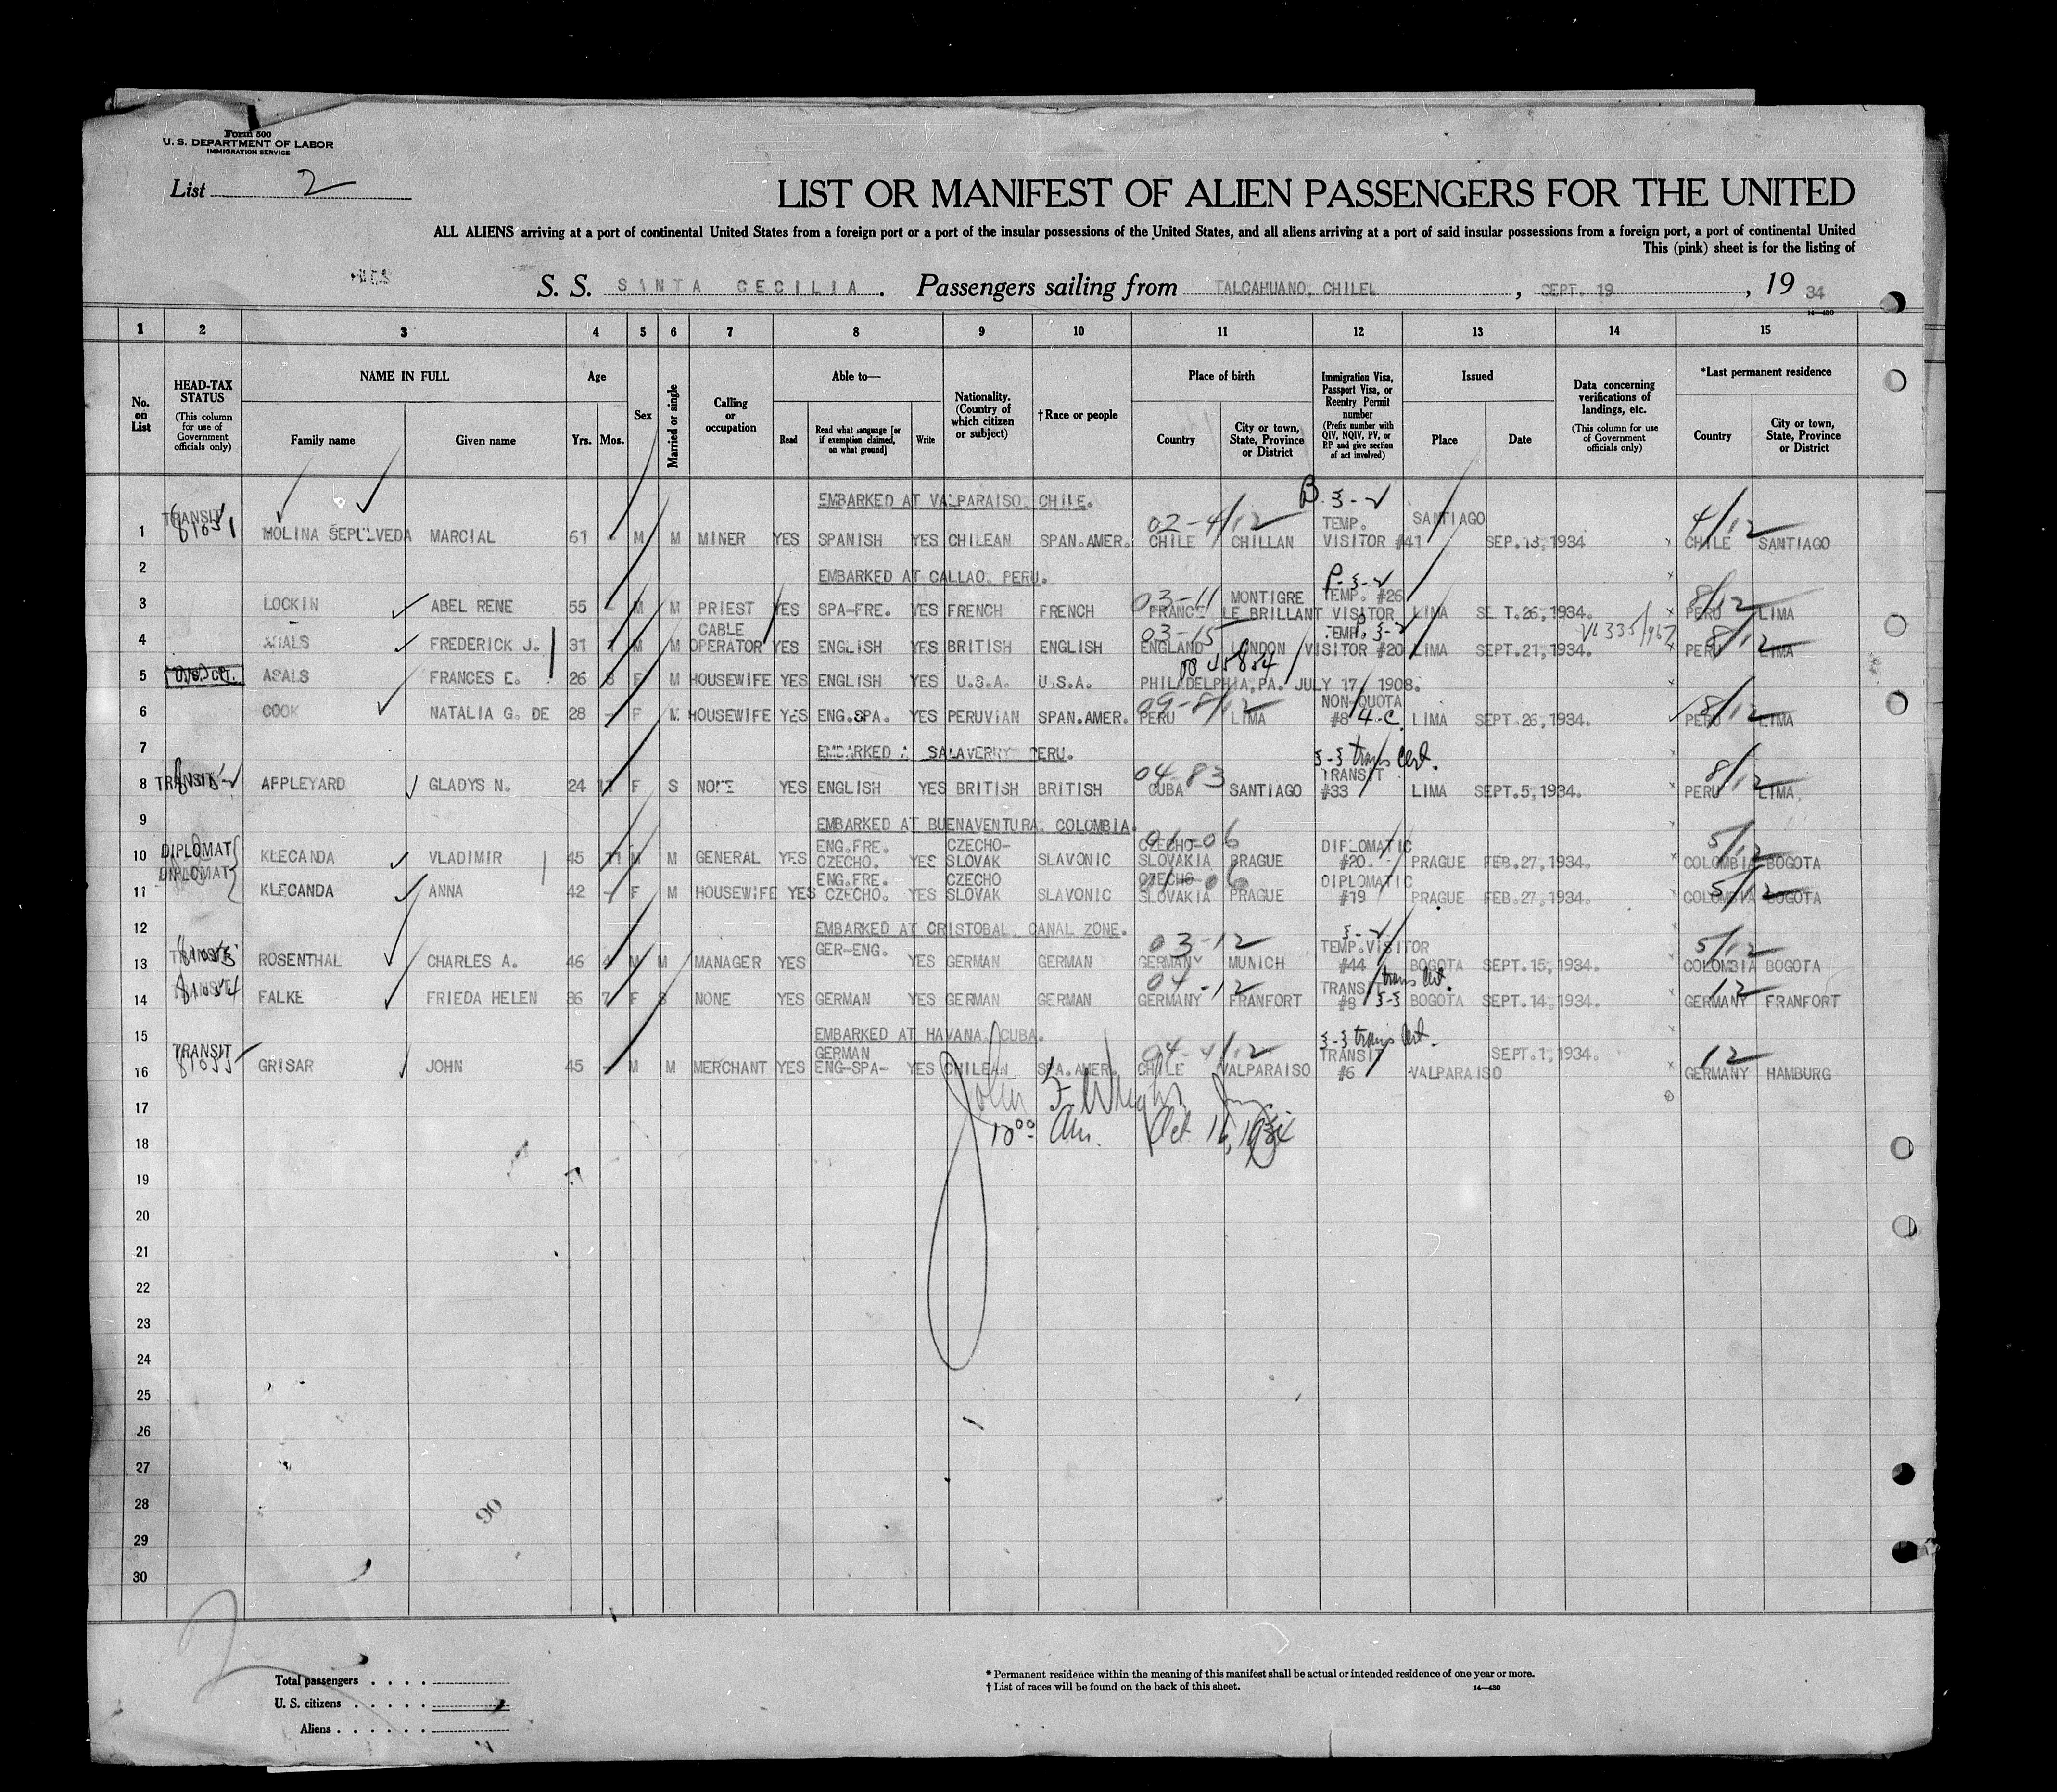 Form 500
U. S. DEPARTMENT OF LABOR
IMMIGRATION SERVICE
List 2
LIST OR MANIFEST OF ALIEN PASSENGERS FOR THE UNITED
ALL ALIENS arriving at a port of continental United States from a foreign port or a port of the insular possessions of the United States, and all aliens arriving at a port of said insular possessions from a foreign port, a port of continental United
This (pink) sheet is for the listing of
S. S. SANTA CECILIA. Passengers sailing from TALCAHUANO, CHILEL, SEPT. 19, 19 34
14—480
1 2 3 4 5 6 7 8 9 10 11 12 13 14 15
No. on List
HEAD-TAX STATUS (This column for use of Government officials only)
NAME IN FULL Family name Given name
Age Yrs. Mos.
Sex
Married or single
Calling or occupation
Able to— Read Read what language [or if exemption claimed, on what ground] Write
Nationality. (Country of which citizen or subject)
†Race or people
Place of birth Country City or town, State, Province or District
Immigration Visa, Passport Visa, or Reentry Permit number (Prefix number with QIV, NQIV, PV, or RP and give section of act involved)
Issued Place Date
Data concerning verifications of landings, etc. (This column for use of Government officials only)
*Last permanent residence Country City or town, State, Province or District
EMBARKED AT VALPARAISO, CHILE.
02-4/12 4/12
1 TRANSIT 81051 MOLINA SEPULVEDA MARCIAL 61 - M M MINER YES SPANISH YES CHILEAN SPAN.AMER. CHILE CHILLAN TEMP. VISITOR #41 SANTIAGO SEP.13,1934 CHILE SANTIAGO
2 EMBARKED AT CALLAO, PERU.
03-11 8/12
3 LOCKIN ABEL RENE 55 - M M PRIEST YES SPA-FRE. YES FRENCH FRENCH FRANCE MONTIGRE LE BRILLANT TEMP. #26 VISITOR LIMA SE T.26,1934. PERU LIMA
03-15 8/12
4 ASALS FREDERICK J. 31 M M CABLE OPERATOR YES ENGLISH YES BRITISH ENGLISH ENGLAND LONDON TEMP. VISITOR #20 LIMA SEPT.21,1934. PERU LIMA
5 U.S. CIT. ASALS FRANCES E. 26 8 F M HOUSEWIFE YES ENGLISH YES U.S.A. U.S.A. PHILADELPHIA,PA. JULY 17, 1908.
09-8/12 8/12
6 COOK NATALIA G. DE 28 - F M HOUSEWIFE YES ENG.SPA. YES PERUVIAN SPAN.AMER. PERU LIMA NON-QUOTA #8 4-C LIMA SEPT.26,1934. PERU LIMA
7 EMBARKED A SALAVERRY PERU.
04-83 3-3 trans Cert. 8/12
8 TRANSIT APPLEYARD GLADYS N. 24 11 F S NONE YES ENGLISH YES BRITISH BRITISH CUBA SANTIAGO TRANSIT #33 LIMA SEPT.5,1934. PERU LIMA.
9 EMBARKED AT BUENAVENTURA, COLOMBIA.
01-06 5/12
10 DIPLOMAT KLECANDA VLADIMIR 45 11 M M GENERAL YES ENG.FRE. CZECHO. YES CZECHO-SLOVAK SLAVONIC CZECHO-SLOVAKIA PRAGUE DIPLOMATIC #20. PRAGUE FEB.27,1934. COLOMBIA BOGOTA
01-06 5/12
11 DIPLOMAT KLECANDA ANNA 42 - F M HOUSEWIFE YES ENG.FRE. CZECHO. YES CZECHO SLOVAK SLAVONIC CZECHO SLOVAKIA PRAGUE DIPLOMATIC #19 PRAGUE FEB.27,1934. COLOMBIA BOGOTA
12 EMBARKED AT CRISTOBAL, CANAL ZONE.
03-12 5/12
13 TRANSIT 81053 ROSENTHAL CHARLES A. 46 4 M M MANAGER YES GER-ENG. YES GERMAN GERMAN GERMANY MUNICH TEMP.VISITOR #44 BOGOTA SEPT.15,1934. COLOMBIA BOGOTA
04-12 trans Cert. 12
14 TRANSIT 81054 FALKE FRIEDA HELEN 36 7 F S NONE YES GERMAN YES GERMAN GERMAN GERMANY FRANFORT TRANSIT #8 3-3 BOGOTA SEPT.14,1934. GERMANY FRANFORT
15 EMBARKED AT HAVANA, CUBA.
04-4/12 3-3 trans Cert. 12
16 TRANSIT 81055 GRISAR JOHN 45 - M M MERCHANT YES GERMAN ENG-SPA- YES CHILEAN SPA.AMER. CHILE VALPARAISO TRANSIT #6 VALPARAISO SEPT.1,1934. GERMANY HAMBURG
17 John F. Wright
18 10⁰⁰ Am. Oct 16, 1934
19
20
21
22
23
24
25
26
27
28
29
30
90
2
Total passengers
U. S. citizens
Aliens
* Permanent residence within the meaning of this manifest shall be actual or intended residence of one year or more.
† List of races will be found on the back of this sheet.
14—480